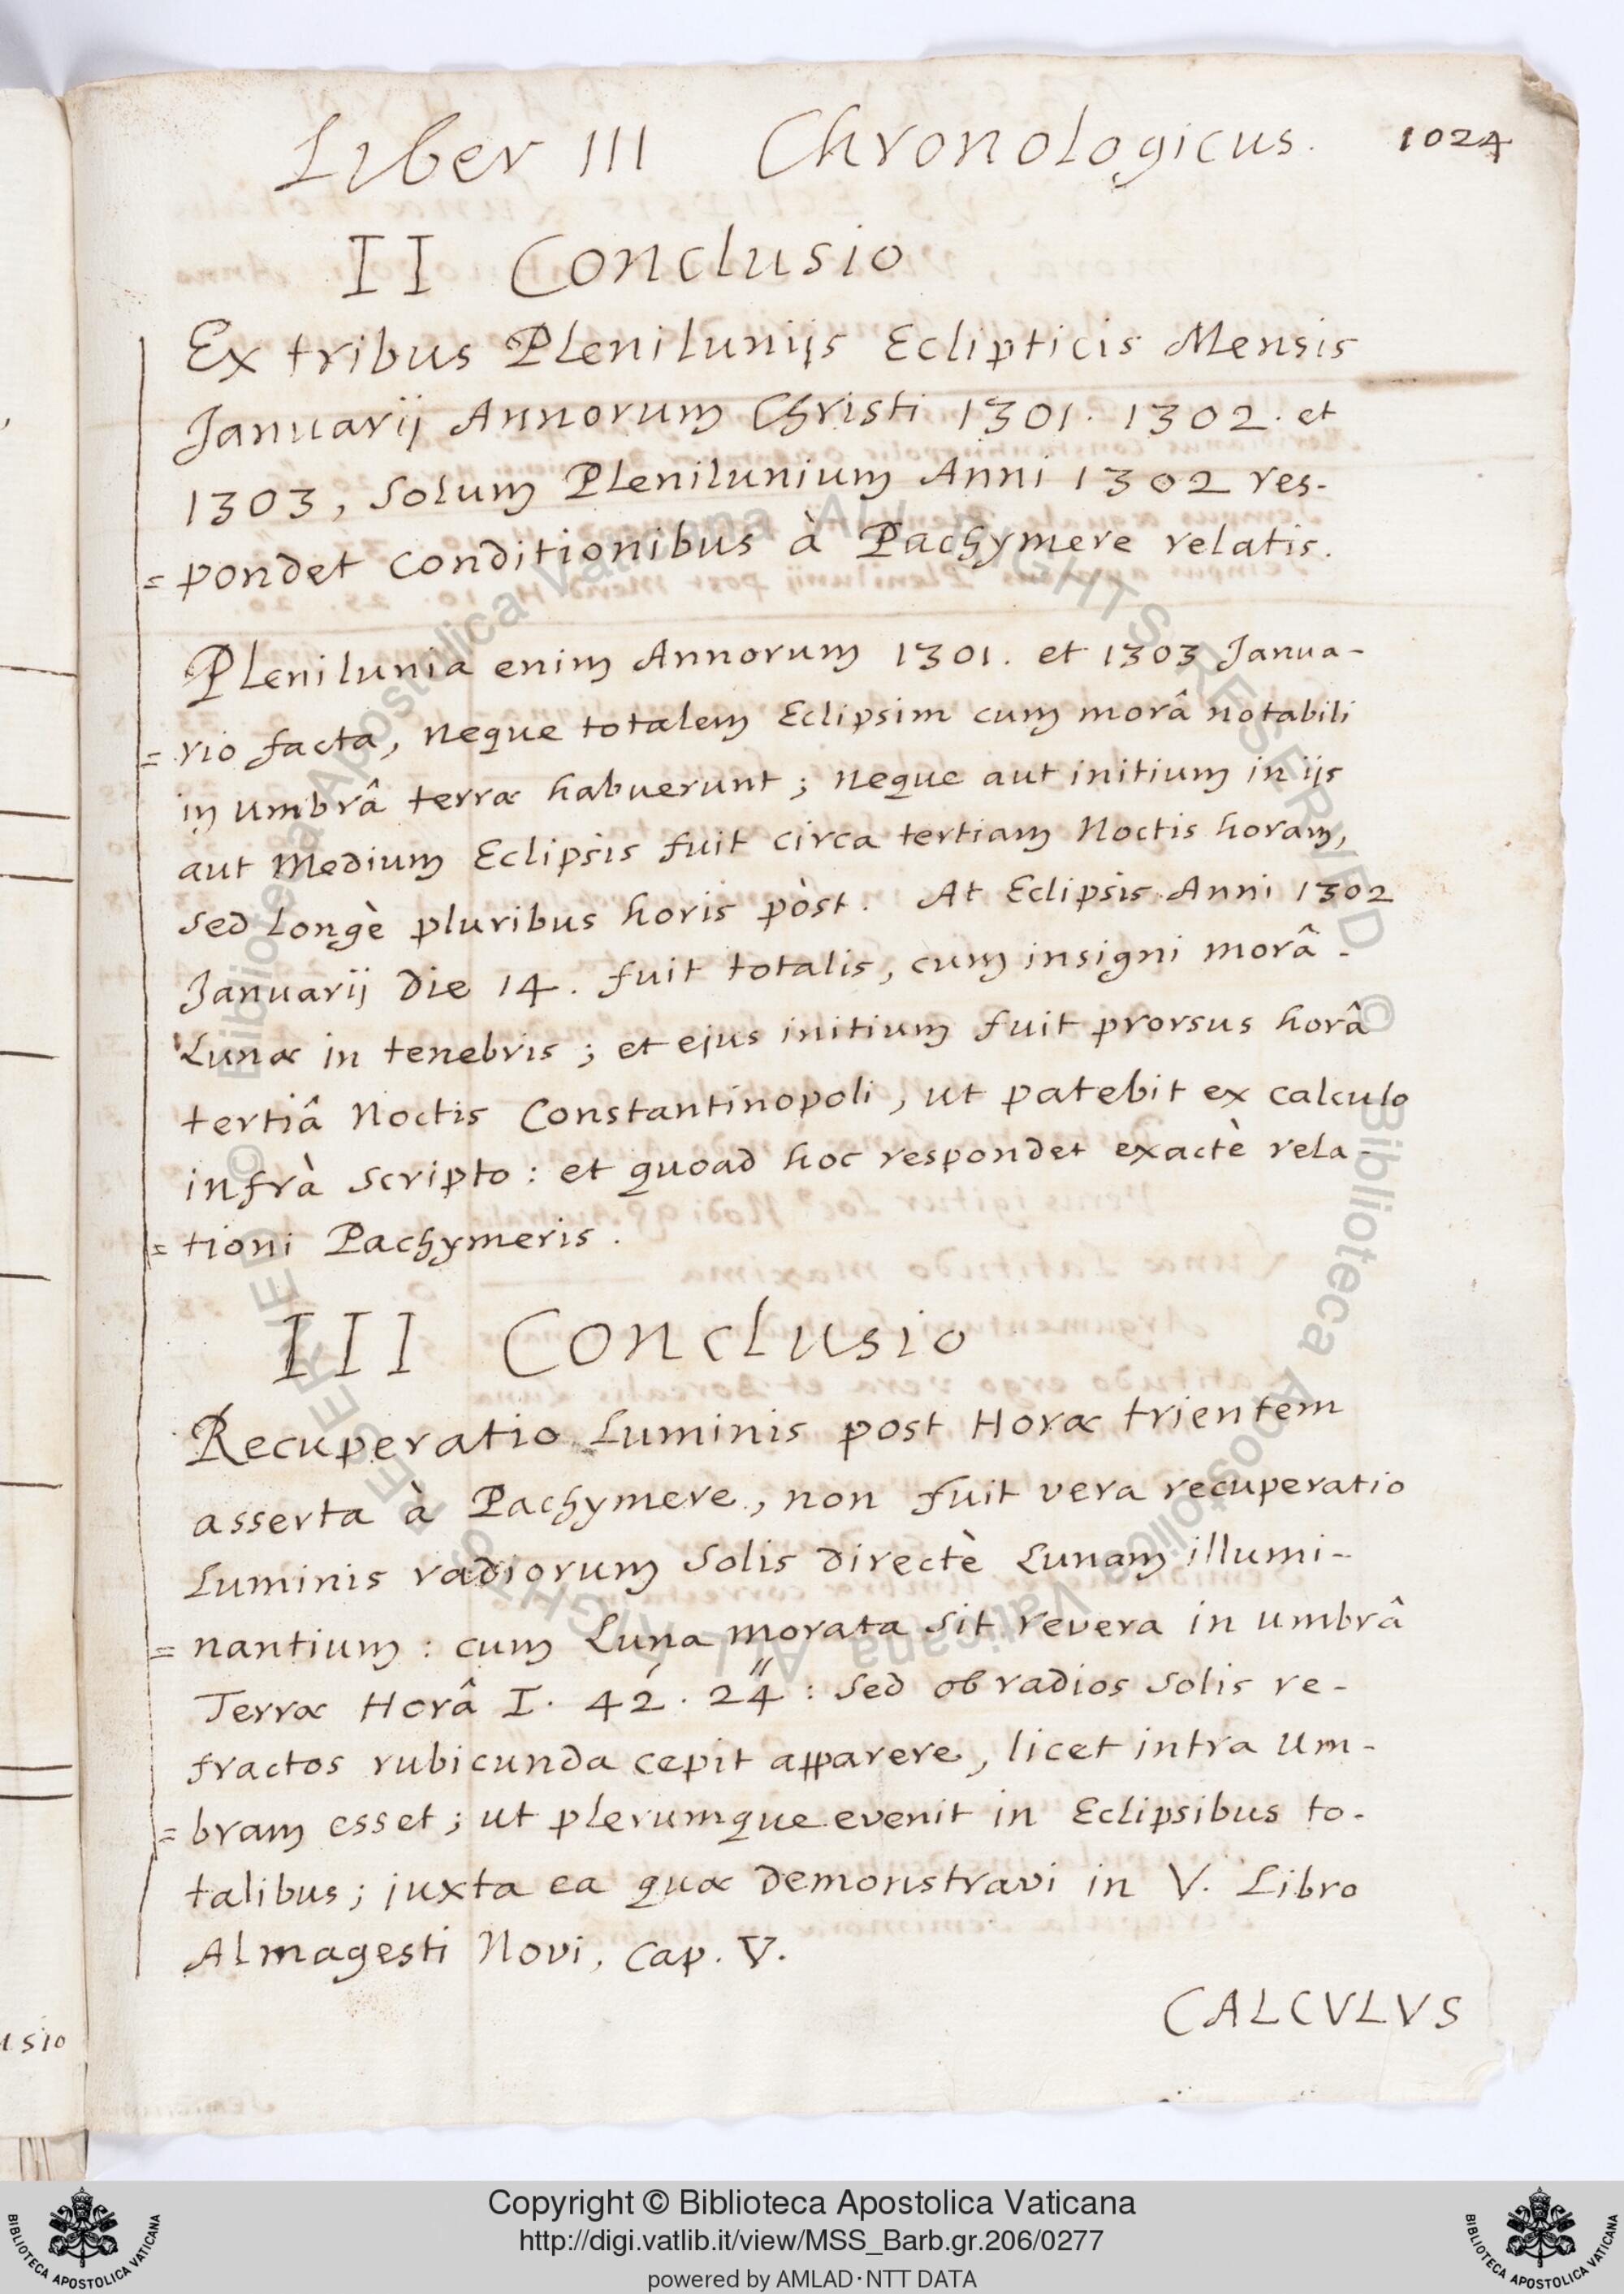 Liber III Chronologicus. 1024
II Conclusio
Ex tribus Pleniluniis Eclipticis Mensis
Januarij Annorum Christi 1301. 1302. et
1303, solum Plenilunium Anni 1302 res-
= pondet conditionibus à Pachymere relatis.
Plenilunia enim Annorum 1301. et 1303 Janua-
= rio facta, neque totalem Eclipsim cum morâ notabili
in umbrâ terræ habuerunt; neque aut initium in ijs
aut Medium Eclipsis fuit circa tertiam Noctis horam,
sed longè pluribus horis pòst. At Eclipsis Anni 1302
Januarij die 14. fuit totalis, cum insigni morâ
Lunæ in tenebris; et ejus initium fuit prorsus horâ
tertiâ Noctis Constantinopoli, ut patebit ex calculo
infrà scripto: et quoad hoc respondet exactè rela-
= tioni Pachymeris.
III Conclusio
Recuperatio Luminis post Horæ trientem
asserta à Pachymere, non fuit vera recuperatio
Luminis radiorum Solis directè Lunam illumi-
= nantium: cum Luna morata sit revera in umbrâ
Terræ Horâ I. 42′. 24″: sed ob radios Solis re-
fractos rubicunda cepit apparere, licet intra um-
= bram esset; ut plerumque evenit in Eclipsibus to-
talibus; juxta ea quæ demonstravi in V. Libro
Almagesti Novi, Cap. V.
CALCVLVS
usio
© Biblioteca Apostolica Vaticana ALL RIGHTS RESERVED © Biblioteca Apostolica Vaticana ALL RIGHTS RESERVED
Copyright © Biblioteca Apostolica Vaticana
http://digi.vatlib.it/view/MSS_Barb.gr.206/0277
powered by AMLAD·NTT DATA
BIBLIOTECA APOSTOLICA VATICANA
BIBLIOTECA APOSTOLICA VATICANA